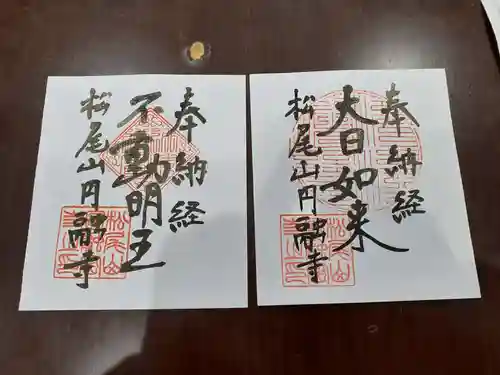 奉納経
大日如来
松尾山円融寺
奉納経
不動明王
松尾山円融寺